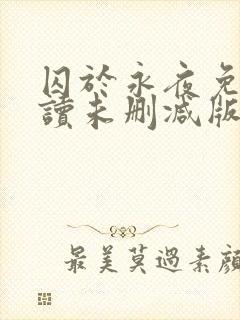 囚於永夜免
讀未刪減版
最美莫過素顏